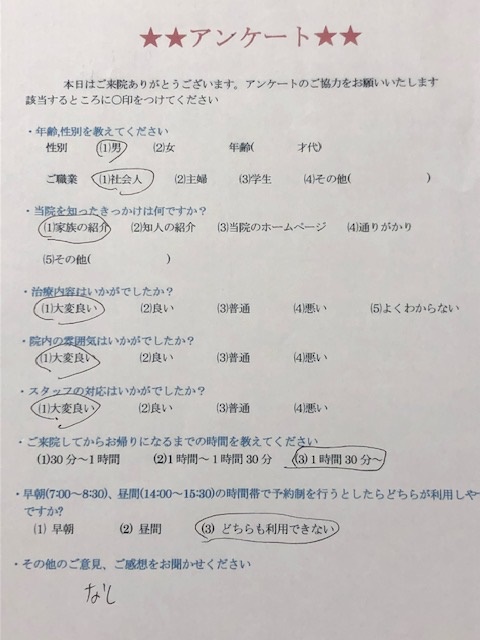 ★★アンケート★★
本日はご来院ありがとうございます。アンケートのご協力をお願いいたします
該当するところに〇印をつけてください
・年齢,性別を教えてください
性別 (1)男 (2)女 年齢( 才代)
ご職業 (1)社会人 (2)主婦 (3)学生 (4)その他( )
・当院を知ったきっかけは何ですか?
(1)家族の紹介 (2)知人の紹介 (3)当院のホームページ (4)通りがかり
(5)その他( )
・治療内容はいかがでしたか?
(1)大変良い (2)良い (3)普通 (4)悪い (5)よくわからない
・院内の雰囲気はいかがでしたか?
(1)大変良い (2)良い (3)普通 (4)悪い
・スタッフの対応はいかがでしたか?
(1)大変良い (2)良い (3)普通 (4)悪い
・ご来院してからお帰りになるまでの時間を教えてください
(1)30分～1時間 (2)1時間～1時間30分 (3)1時間30分～
・早朝(7:00～8:30)、昼間(14:00～15:30)の時間帯で予約制を行うとしたらどちらが利用しや
ですか?
(1) 早朝 (2) 昼間 (3) どちらも利用できない
・その他のご意見、ご感想をお聞かせください
なし